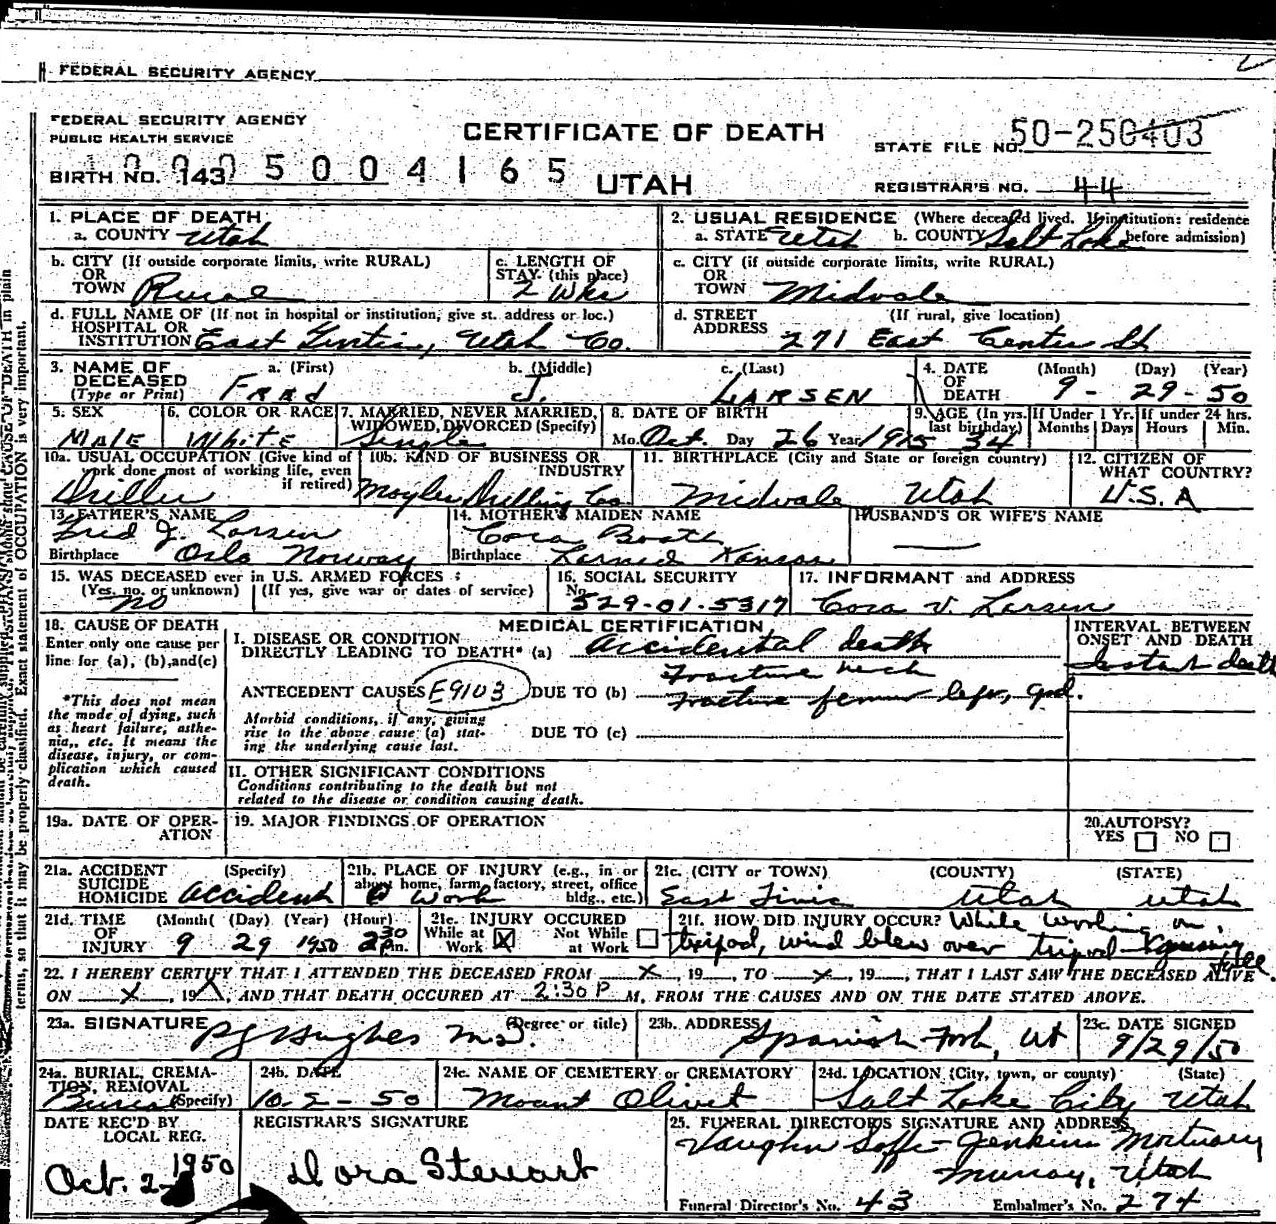 FEDERAL SECURITY AGENCY
FEDERAL SECURITY AGENCY
PUBLIC HEALTH SERVICE
CERTIFICATE OF DEATH
STATE FILE NO. 50-250403
BIRTH NO. 143 5 0 0 4 1 6 5
UTAH
REGISTRAR'S NO. 44
1. PLACE OF DEATH
a. COUNTY Utah
2. USUAL RESIDENCE (Where deceased lived. If institution: residence before admission)
a. STATE Utah b. COUNTY Salt Lake
b. CITY (If outside corporate limits, write RURAL) OR TOWN Rural
c. LENGTH OF STAY (this place) 2 Wks
c. CITY (if outside corporate limits, write RURAL) OR TOWN Midvale
d. FULL NAME OF (If not in hospital or institution, give st. address or loc.) HOSPITAL OR INSTITUTION East Tintic, Utah Co.
d. STREET ADDRESS (If rural, give location) 271 East Center St
3. NAME OF DECEASED (Type or Print) a. (First) Fred b. (Middle) J. c. (Last) LARSEN
4. DATE OF DEATH (Month) (Day) (Year) 9-29-50
5. SEX Male
6. COLOR OR RACE White
7. MARRIED, NEVER MARRIED, WIDOWED, DIVORCED (Specify) Single
8. DATE OF BIRTH Mo. Oct. Day 26 Year 1915
9. AGE (In yrs. last birthday) 34
If Under 1 Yr. Months Days
If under 24 hrs. Hours Min.
10a. USUAL OCCUPATION (Give kind of work done most of working life, even if retired) Driller
10b. KIND OF BUSINESS OR INDUSTRY Moyle Drilling Co
11. BIRTHPLACE (City and State or foreign country) Midvale Utah
12. CITIZEN OF WHAT COUNTRY? U.S.A
13. FATHER'S NAME Fred J. Larsen
Birthplace Oslo Norway
14. MOTHER'S MAIDEN NAME Cora Booth
Birthplace Larned Kansas
HUSBAND'S OR WIFE'S NAME
15. WAS DECEASED ever in U.S. ARMED FORCES
(Yes, no, or unknown) (If yes, give war or dates of service) No
16. SOCIAL SECURITY No. 529-01-5317
17. INFORMANT and ADDRESS Cora V. Larsen
18. CAUSE OF DEATH
Enter only one cause per line for (a), (b), and (c)
*This does not mean the mode of dying, such as heart failure, asthenia, etc. It means the disease, injury, or complication which caused death.
MEDICAL CERTIFICATION
I. DISEASE OR CONDITION DIRECTLY LEADING TO DEATH* (a) Accidental death
Fracture neck
ANTECEDENT CAUSES E9103 DUE TO (b) Fracture femur left,
Morbid conditions, if any, giving rise to the above cause (a) stating the underlying cause last.
DUE TO (c)
INTERVAL BETWEEN ONSET AND DEATH
Instant death
II. OTHER SIGNIFICANT CONDITIONS
Conditions contributing to the death but not related to the disease or condition causing death.
19a. DATE OF OPERATION
19. MAJOR FINDINGS OF OPERATION
20. AUTOPSY?
YES NO
21a. ACCIDENT SUICIDE HOMICIDE (Specify) Accident
21b. PLACE OF INJURY (e.g., in or about home, farm, factory, street, office bldg., etc.) @ Work
21c. (CITY or TOWN) (COUNTY) (STATE)
East Tinic Utah Utah
21d. TIME OF INJURY (Month) (Day) (Year) (Hour) 9 29 1950 2:30 Pm.
21e. INJURY OCCURED While at Work X Not While at Work
21f. HOW DID INJURY OCCUR? While working on
tripod, wind blew over tripod
22. I HEREBY CERTIFY THAT I ATTENDED THE DECEASED FROM X, 19 , TO X, 19 , THAT I LAST SAW THE DECEASED ALIVE
ON X, 19X, AND THAT DEATH OCCURED AT 2:30 P M. FROM THE CAUSES AND ON THE DATE STATED ABOVE.
23a. SIGNATURE (Degree or title) PJ Hughes M.D.
23b. ADDRESS Spanish Fork, Ut
23c. DATE SIGNED 9/29/50
24a. BURIAL, CREMATION, REMOVAL (Specify) Burial
24b. DATE 10-2-50
24c. NAME OF CEMETERY or CREMATORY Mount Olivet
24d. LOCATION (City, town, or county) (State) Salt Lake City Utah
DATE REC'D BY LOCAL REG. Oct. 2- 1950
REGISTRAR'S SIGNATURE Dora Stewart
25. FUNERAL DIRECTOR'S SIGNATURE AND ADDRESS
Vaughn Jenkins Mortuary
Murray, Utah
Funeral Director's No. 43 Embalmer's No. 274
terms, so that it may be properly classified. Exact statement of OCCUPATION is very important.